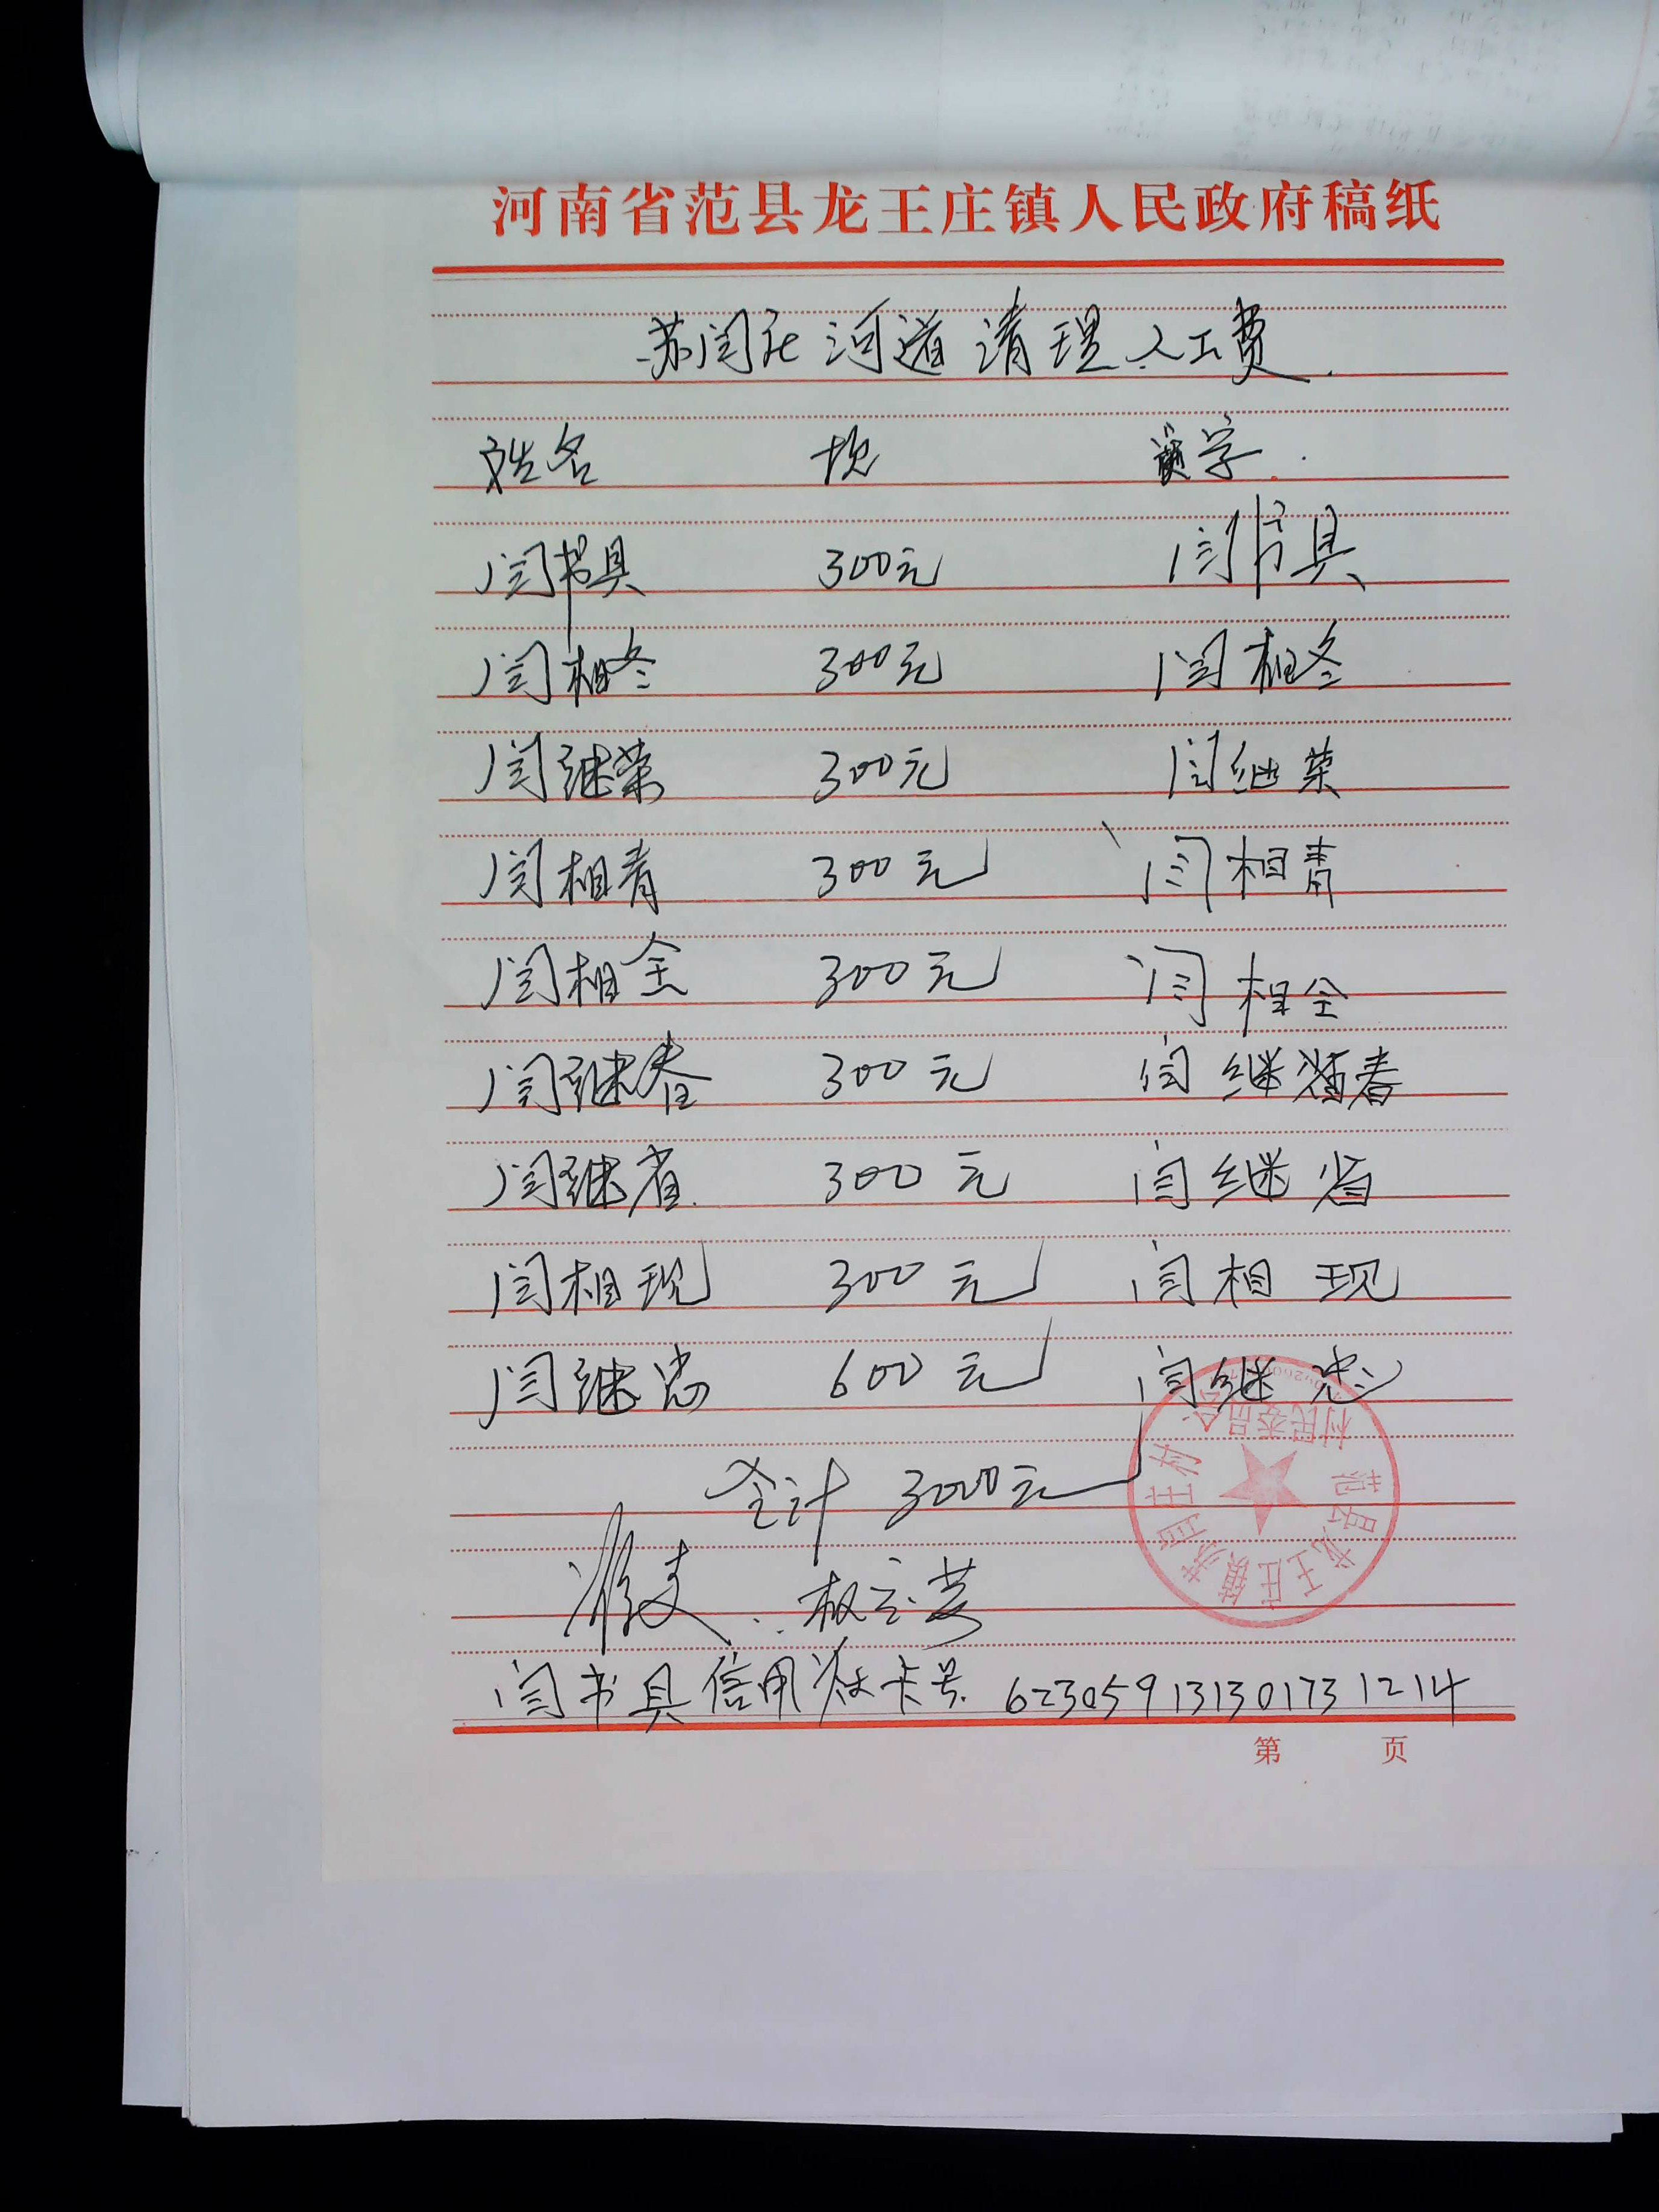 河南省范县龙王庄镇人民政府稿纸
苏闫庄河道清理人工费.
姓名 款 签字.
闫书具 300元 闫书具
闫相冬 300元 闫相冬
闫继荣 300元 闫继荣
闫相青 300元 闫相青
闫相全 300元 闫相全
闫继春 300元 闫继春
闫继省 300元 闫继省
闫相现 300元 闫相现
闫继忠 600元 闫继忠
合计 3000元
准支.
闫书具信用社卡号. 623059131301731214
范县龙王庄镇苏闫庄村村民委员会
第 页